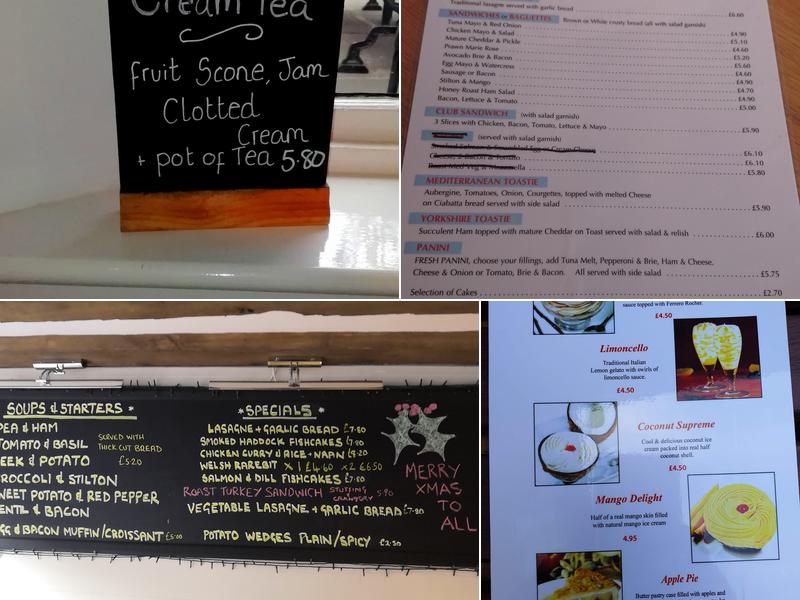 Cream Tea
Fruit Scone, Jam
Clotted
Cream
+ pot of Tea 5.80
Traditional lasagne served with garlic bread £6.60
SANDWICHES or BAGUETTES Brown or White crusty bread (all with salad garnish)
Tuna Mayo & Red Onion
Chicken Mayo & Salad £4.90
Mature Cheddar & Pickle £5.10
Prawn Marie Rose £4.60
Avocado Brie & Bacon £5.20
Egg Mayo & Watercress £5.60
Sausage or Bacon £4.60
Stilton & Mango £4.90
Honey Roast Ham Salad £4.70
Bacon, Lettuce & Tomato £4.90
£5.00
CLUB SANDWICH (with salad garnish)
3 Slices with Chicken, Bacon, Tomato, Lettuce & Mayo £5.90
(served with salad garnish)
Smoked Salmon & Scrambled Egg or Cream Cheese £6.10
Cheese, & Bacon & Tomato £6.10
Roast Med Veg & Mozzarella £5.80
MEDITERRANEAN TOASTIE
Aubergine, Tomatoes, Onion, Courgettes, topped with melted Cheese
on Ciabatta bread served with side salad £5.90
YORKSHIRE TOASTIE
Succulent Ham topped with mature Cheddar on Toast served with salad & relish £6.00
PANINI
FRESH PANINI, choose your fillings, add Tuna Melt, Pepperoni & Brie, Ham & Cheese,
Cheese & Onion or Tomato, Brie & Bacon. All served with side salad £5.75
Selection of Cakes £2.70
SOUPS & STARTERS *
PEA & HAM
TOMATO & BASIL
EEK & POTATO
BROCCOLI & STILTON
WEET POTATO & RED PEPPER
ENTIL & BACON
GG & BACON MUFFIN/CROISSANT £5.00
SERVED WITH
THICK CUT BREAD
£5.20
* SPECIALS *
LASAGNE + GARLIC BREAD £7.80
SMOKED HADDOCK FISHCAKES £7.80
CHICKEN CURRY & RICE + NAAN £8.20
WELSH RAREBIT X 1 £4.60 X2 £6.50
SALMON & DILL FISHCAKES £7.80
ROAST TURKEY SANDWICH STUFFING CRANBERRY 5.90
VEGETABLE LASAGNE + GARLIC BREAD £7.80
POTATO WEDGES PLAIN/SPICY £2.50
MERRY
XMAS
TO
ALL
sauce topped with Ferrero Rocher.
£4.50
Limoncello
Traditional Italian
Lemon gelato with swirls of
limoncello sauce.
£4.50
Coconut Supreme
Cool & delicious coconut ice
cream packed into real half
coconut shell.
£4.50
Mango Delight
Half of a real mango skin filled
with natural mango ice cream
4.95
Apple Pie
Butter pastry case filled with apples and